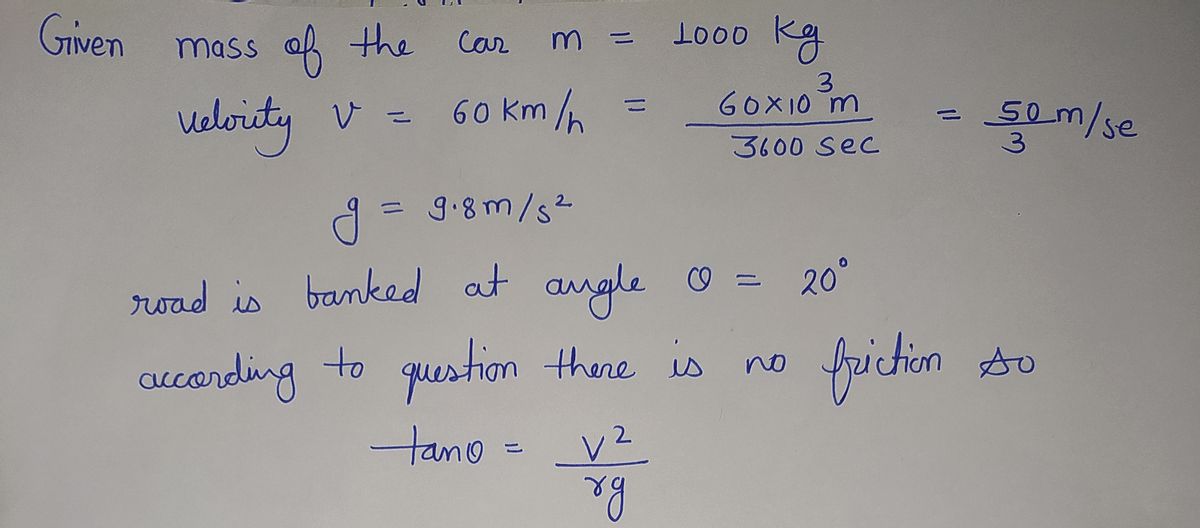 Given mass of the car m = 1000 kg
velocity v = 60 km/h = 60×10³m / 3600 sec = 50 m/se / 3
g = 9.8 m/s²
road is banked at angle θ = 20°
according to question there is no friction so
tanθ = v² / rg